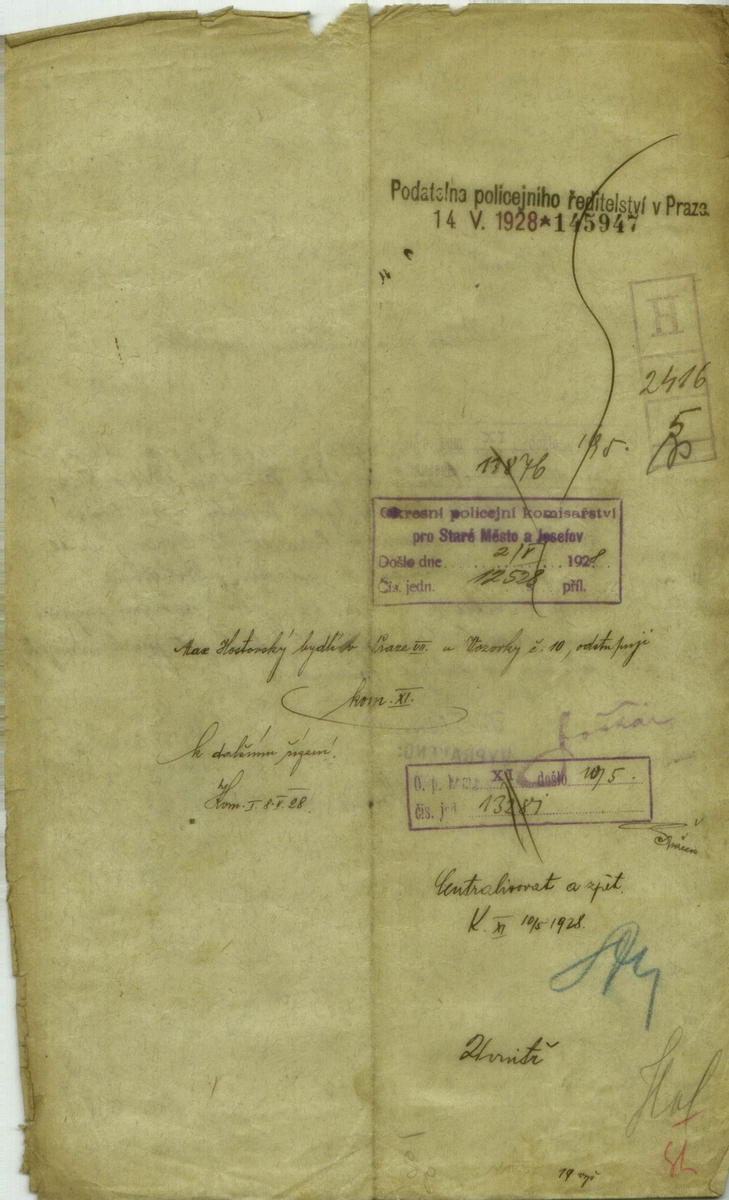 Podatelna policejního ředitelství v Praze.
14 V. 1928*145947
H
2416
5
13876
Okresní policejní komisařství
pro Staré Město a Josefov
Došlo dne 2/V 1928
Čís. jedn. 12528 příl.
Max Hostovský bydlí v Praze VII. u Vozovky č. 10, odstupuji
kom. XI.
k dalšímu řízení!
Kom. I 8. V. 28.
XI došlo 10/5.
čís. jed. 13287
Centralisovat a zpět.
K. XI 10/5 1928.
Uvnitř